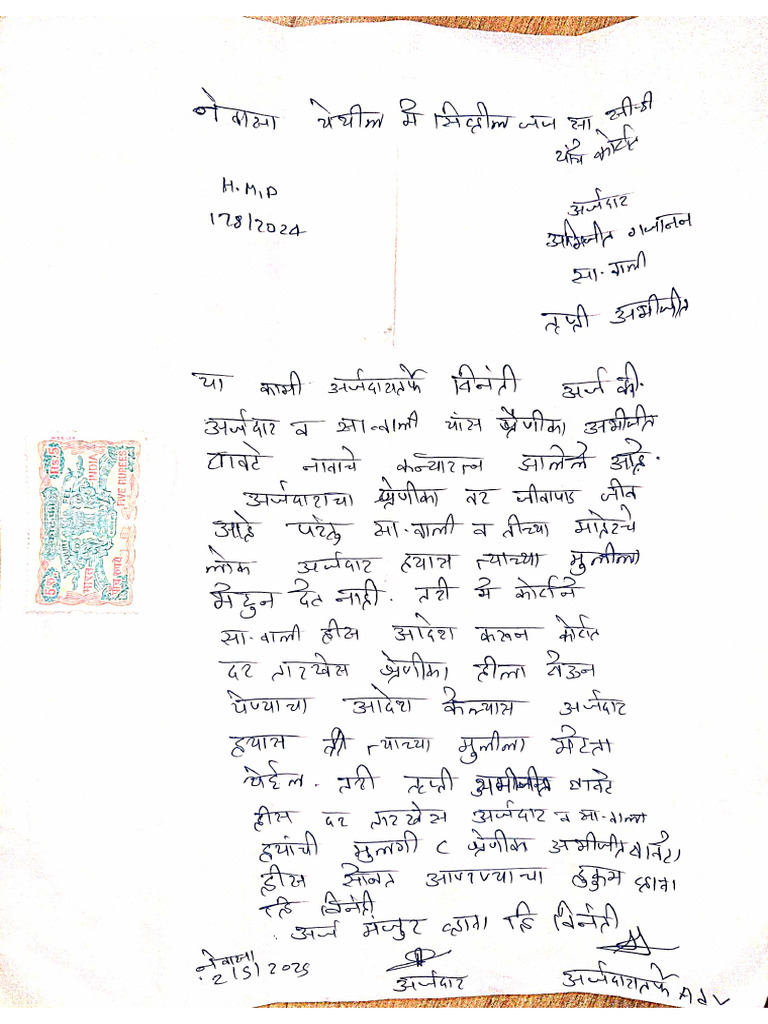 नेवासा येथील मे सिव्हील जज सा
यांचे कोर्टात
H.M.P
128/2024
अर्जदार
अभिजीत गजानन
सा.वाली
तृप्ती अभीजीत
या कामी अर्जदारातर्फे विनंती अर्ज की.
अर्जदार व सा.वाली यांस श्रेणीका अभीजीत
वावटे नावाचे कन्यारत्न झालेले आहे.
अर्जदाराचा श्रेणीका वर जीवापाड जीव
आहे परंतु सा.वाली व तीच्या माहेरचे
लोक अर्जदार ह्यास त्याच्या मुलीला
भेटुन देत नाही. तरी मे कोर्टाने
सा.वाली हीस आदेश करून कोर्टात
दर तारखेस श्रेणीका हीला घेऊन
येण्याचा आदेश केल्यास अर्जदार
ह्यास त्याच्या मुलीला भेटता
येईल. तरी तृप्ती अभीजीत वावटे
हीस दर तारखेस अर्जदार व सा.वाली
ह्यांची मुलगी श्रेणीका अभीजीत वावटे
हीस सोबत आणण्याचा हुकुम व्हावा
हि विनंती
अर्ज मंजुर व्हावा हि विनंती
नेवासा
2/5/2025
अर्जदार
अर्जदारातर्फे Adv
Rs.5
INDIA
FIVE RUPEES
भारत